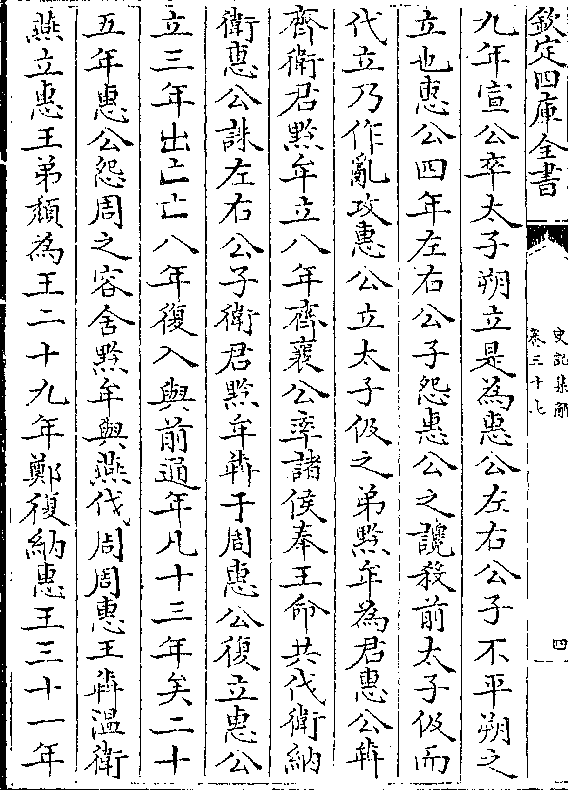 欽定四庫全書
史記集解
卷三十七
四
九年宣公卒太子朔立是為惠公左右公子不平朔之
立也惠公四年左右公子怨惠公之讒殺前太子伋而
代立乃作亂攻惠公立太子伋之弟黔牟為君惠公犇
齊衛君黔牟立八年齊襄公率諸侯奉王命共伐衛納
衛惠公誅左右公子衛君黔牟犇于周惠公復立惠公
立三年出亡亡八年復入與前通年凡十三年矣二十
五年惠公怨周之容舍黔牟與燕伐周周惠王犇温衛
燕立惠王弟頽為王二十九年鄭復納惠王三十一年